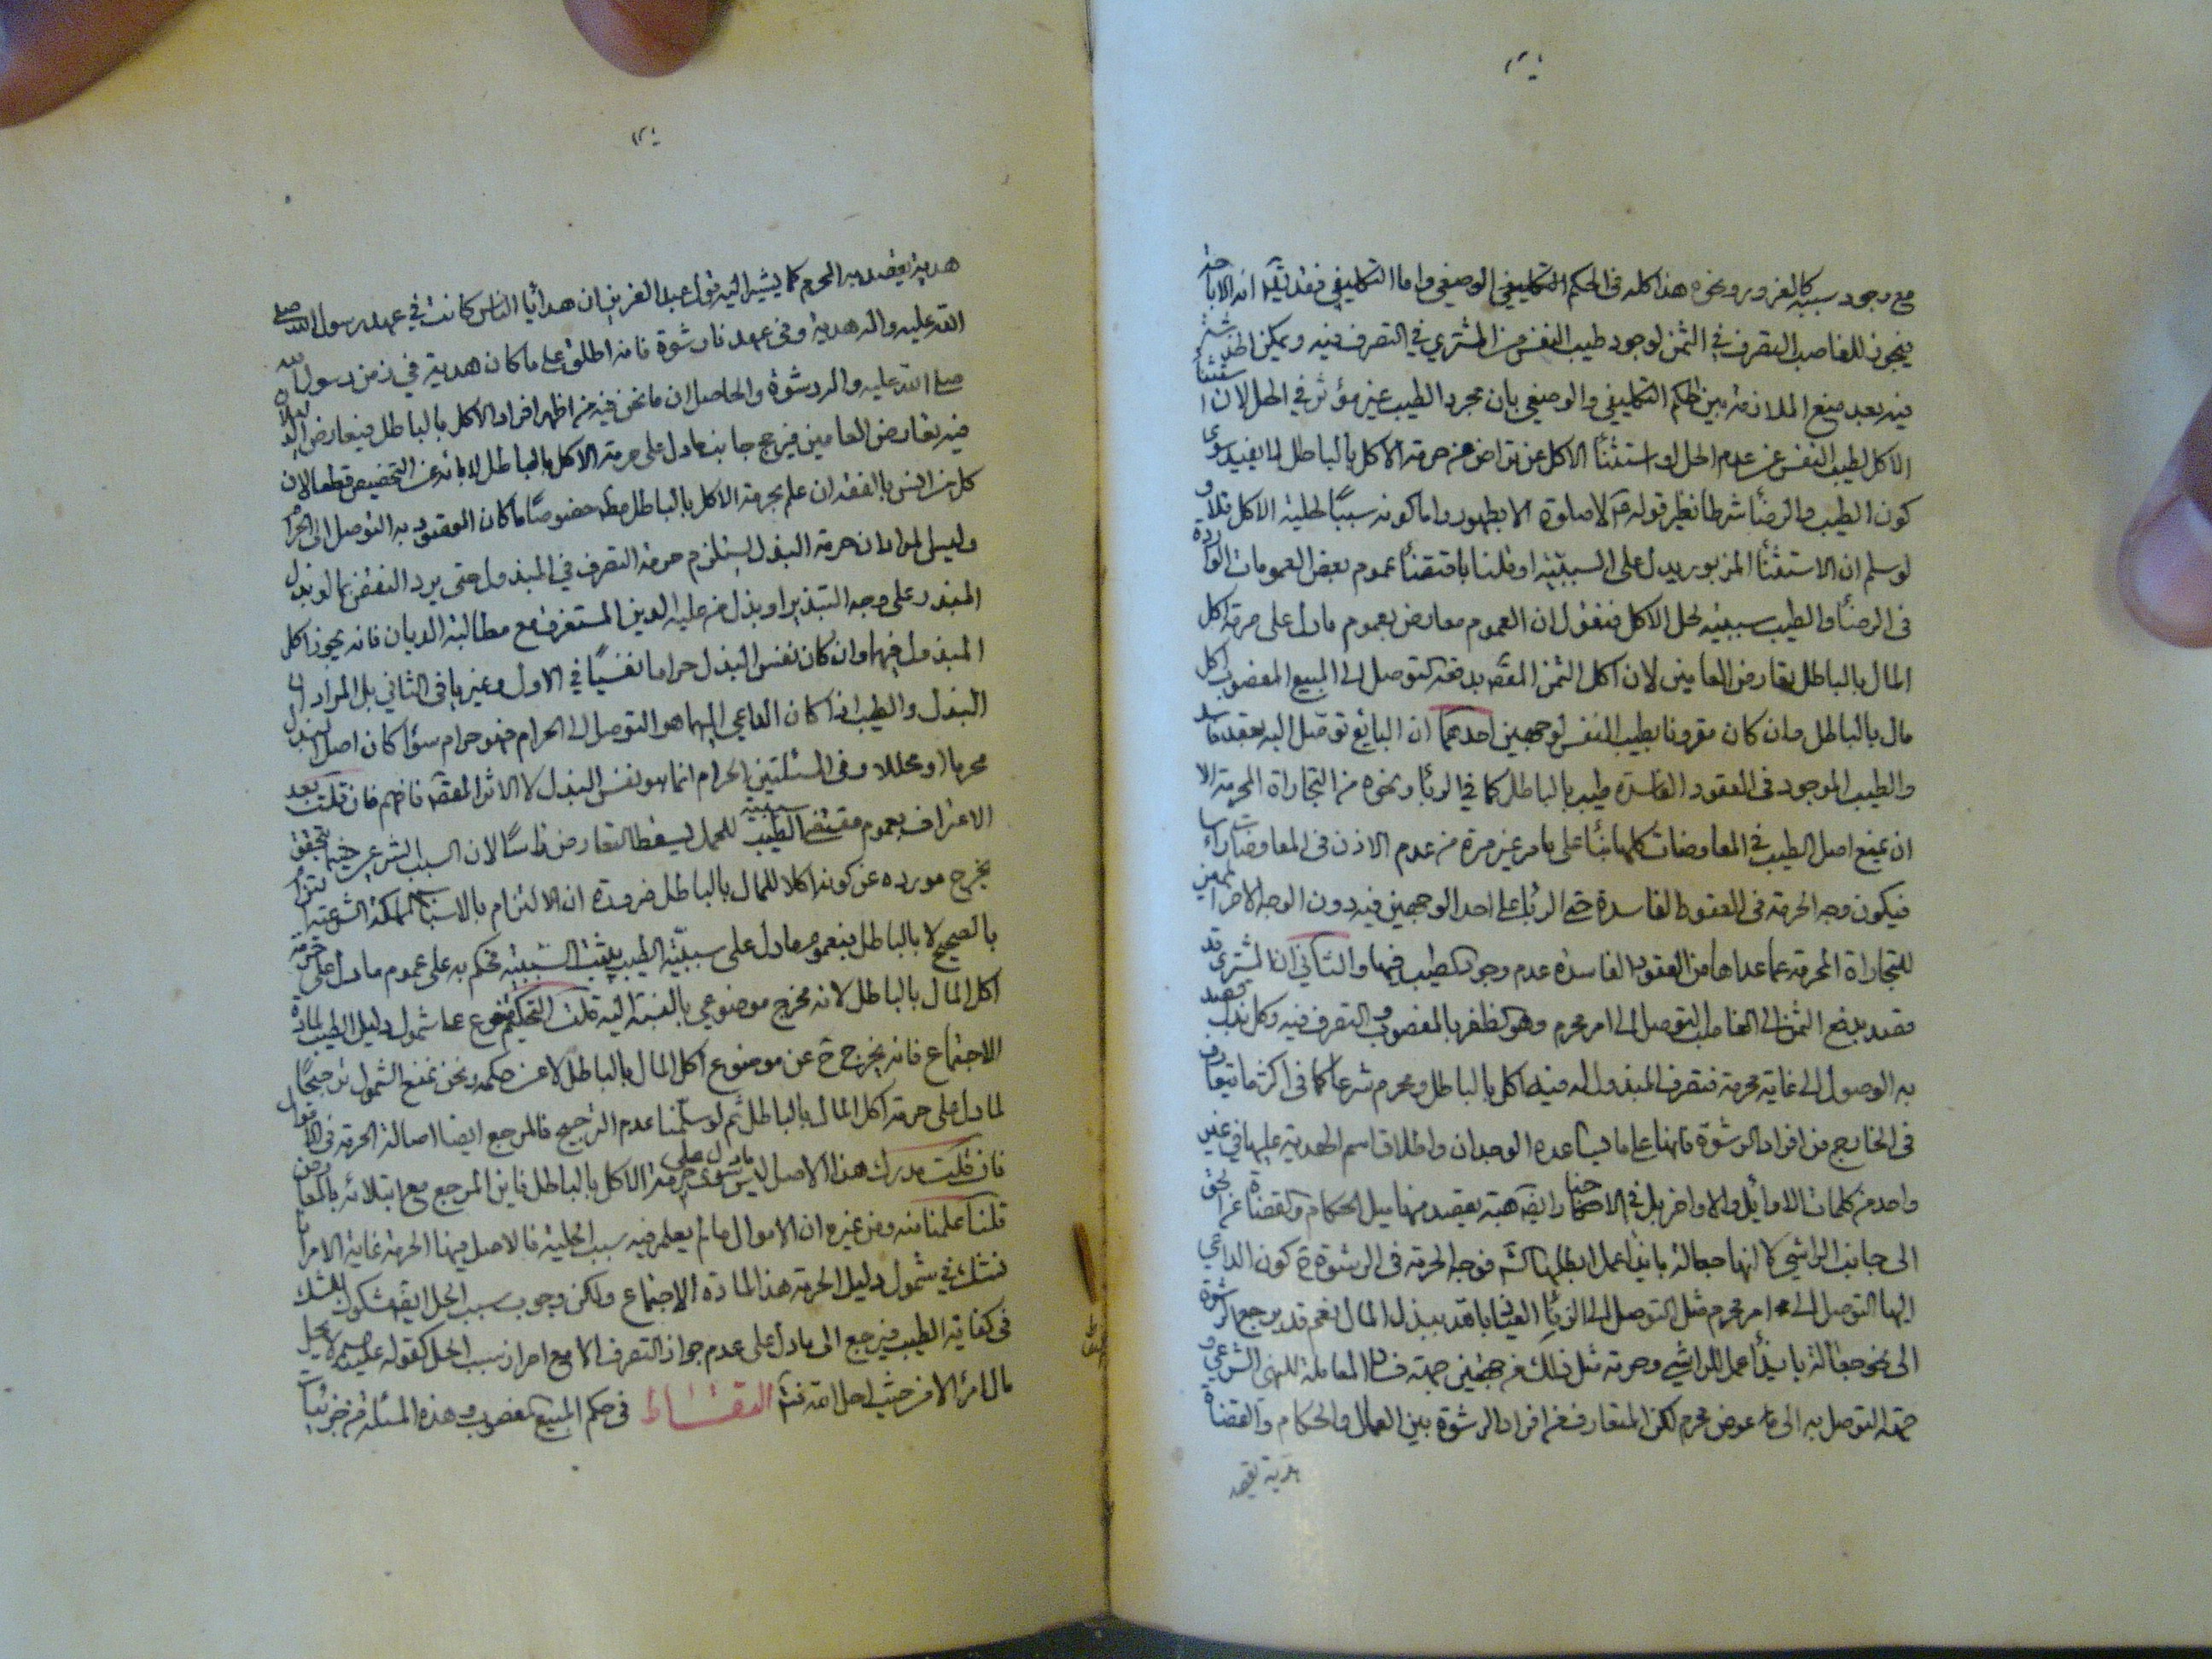 مع وجود سببه كالغرور ونحوه هذا كله فى الحكم الوضعي واما التكليفي فقد انه الاباحة
فيجوز للغاصب التصرف في الثمن لوجود طيب النفس من المشتري في التصرف فيه ويمكن
فيه بعد منع الملازمة بين الحكم التكليفي والوضعي بان مجرد الطيب غير مؤثر في الحل لان استثناء
الاكل لطيب النفس عن عدم الحل او استثناء الاكل عن تراض من حرمة الاكل بالباطل لا يفيد سوى
كون الطيب والرضا شرطا نظير قوله لا صلوة الا بطهور واما كونه سببًا لحلية الاكل فلا و
لو سلم ان الاستثناء المزبور يدل على السببية او قلنا باقتضاء عموم بعض العمومات الواردة
فى الرضا والطيب سببيته لحل الاكل فنقول ان العموم معارض بعموم ما دل على حرمة اكل
المال بالباطل تعارض العامين لان اكل الثمن بدفعه التوصل الى المبيع المغصوب اكل
مال بالباطل وان كان مقرونا بطيب النفس لوجهين احدهما ان البايع توصل اليه بعقد فاسد
والطيب الموجود فى العقود الفاسدة طيب بالباطل كما في الربا ونحوه من التجاراة المحرمة الا
ان نمنع اصل الطيب في المعاوضات كلها بناء على ما مر غير مرة من عدم الاذن فى المعاوضات راسا
فيكون وجه الحرمة فى العقود الفاسدة حتى الربا على احد الوجهين فيه دون الوجه الاخر
للتجاراة المحرمة عما عداها من العقود الفاسدة عدم وجود الطيب فيها والثاني ان المشتري قد
قصد بدفع الثمن الى الغاصب التوصل الى امر محرم وهو الظفر بالمغصوب والتصرف فيه وكل بذل قصد
به الوصول الى غاية محرمة فتصرف المبذول له فيه اكل بالباطل ومحرم شرعا كما فى اكثر ما يتعارف
فى الخارج من افراد الرشوة فانها على ما يساعده الوجدان واطلاق اسم الهدية عليها في غير
واحد من كلمات الاوائل والاواخر بل في الاخبار ايضا هبة يقصد منها ميل الحكام والقضاة عن الحق
الى جانب الراشي لا انها جعالة بازاء اعمال فوجه الحرمة فى الرشوة كون الداعي
اليها التوصل الى امر محرم مثل التوصل الى الزنا ببذل المال نعم قد يرجع الرشوة
الى نحو جعالة بازاء عمل المرتشي وحرمة مثل ذلك من جهتين جهة فساد المعاملة للنهي الشرعي و
جهة التوصل به الى عوض محرم لكن المتعارف من افراد الرشوة بين العمال والحكام والقضاة
هدية يقصد
هدية يقصد به المحرم كما يشير اليه قول عبد العزيز ان هدايا الناس كانت في عهد رسول الله صلى
الله عليه واله هدية وفي عهدنا رشوة فانه اطلق على ما كان هدية في زمن رسول الله
صلى الله عليه واله رشوة والحاصل ان ما نحن فيه من اظهر افراد الاكل بالباطل فيتعارض
فيه تعارض العامين فيرجح جانب ما دل على حرمة الاكل بالباطل لابائه عن التخصيص قطعا لان
كل من انس بالفقه ان علم بحرمة الاكل بالباطل خصوصًا ما كان المقصود به التوصل الى الحرام
وليس المراد ان حرمة البذل يستلزم حرمة التصرف في المبذول حتى يرد النقض بما لو بذل
المبذر على وجه التبذير او بذل من عليه الدين المستغرق مع مطالبة الديان فانه يجوز اكل
المبذول فيهما وان كان نفس البذل حراما نفسيًا في الاول وغيريا فى الثاني بل المراد ان
البذل والطيب اذا كان الداعي اليهما هو التوصل الى الحرام فهو حرام سواء كان اصل البذل
محرما او محللا وفى المسئلتين الحرام انما هو نفس البذل لا الاثر فافهم فان قلت بعد
الاعتراف بعموم مقتضى سببية الطيب للحل يسقط التعارض راسًا لان السبب الشرعي حيثما يتحقق
يخرج مورده عن كونه اكلا للمال بالباطل ضرورة ان الالتزام بالاسباب المملكة الشرعية
بالصحيح لا بالباطل فبعموم ما دل على سببية الطيب يثبت السببية فيحكم به على عموم ما دل على حرمة
اكل المال بالباطل لانه مخرج موضوعي بالنسبة اليه قلت التحكيم فرع شمول دليل الطيب لمادة
الاجتماع فانه يخرج ح عن موضوع اكل المال بالباطل لا عن حكمه ونحن نمنع الشمول ترجيحًا
لما دل على حرمة اكل المال بالباطل ثم لو سلمنا عدم الترجيح فالمرجع ايضا اصالة الحرمة فى الاموال
فان قلت مدرك هذا الاصل ليس سوى ما دل على حرمة الاكل بالباطل فاين المرجع مع ابتلائه بالمعارض
قلنا علمنا منه ومن غيره ان الاموال ما لم يعلم فيه سبب الحلية فالاصل فيها الحرمة غاية الامر انا
نشك في شمول دليل الحرمة هذا المادة الاجتماع ولكن وجوب سبب الحل ايضا مشكوك للشك
فى كفاية الطيب فيرجع الى ما دل على عدم جواز التصرف الا مع احراز سبب الحل كقوله لا يحل
مال امرئ الا من حيث احل الله فى حكم المبيع المغصوب وهذه المسئلة من جزئيات